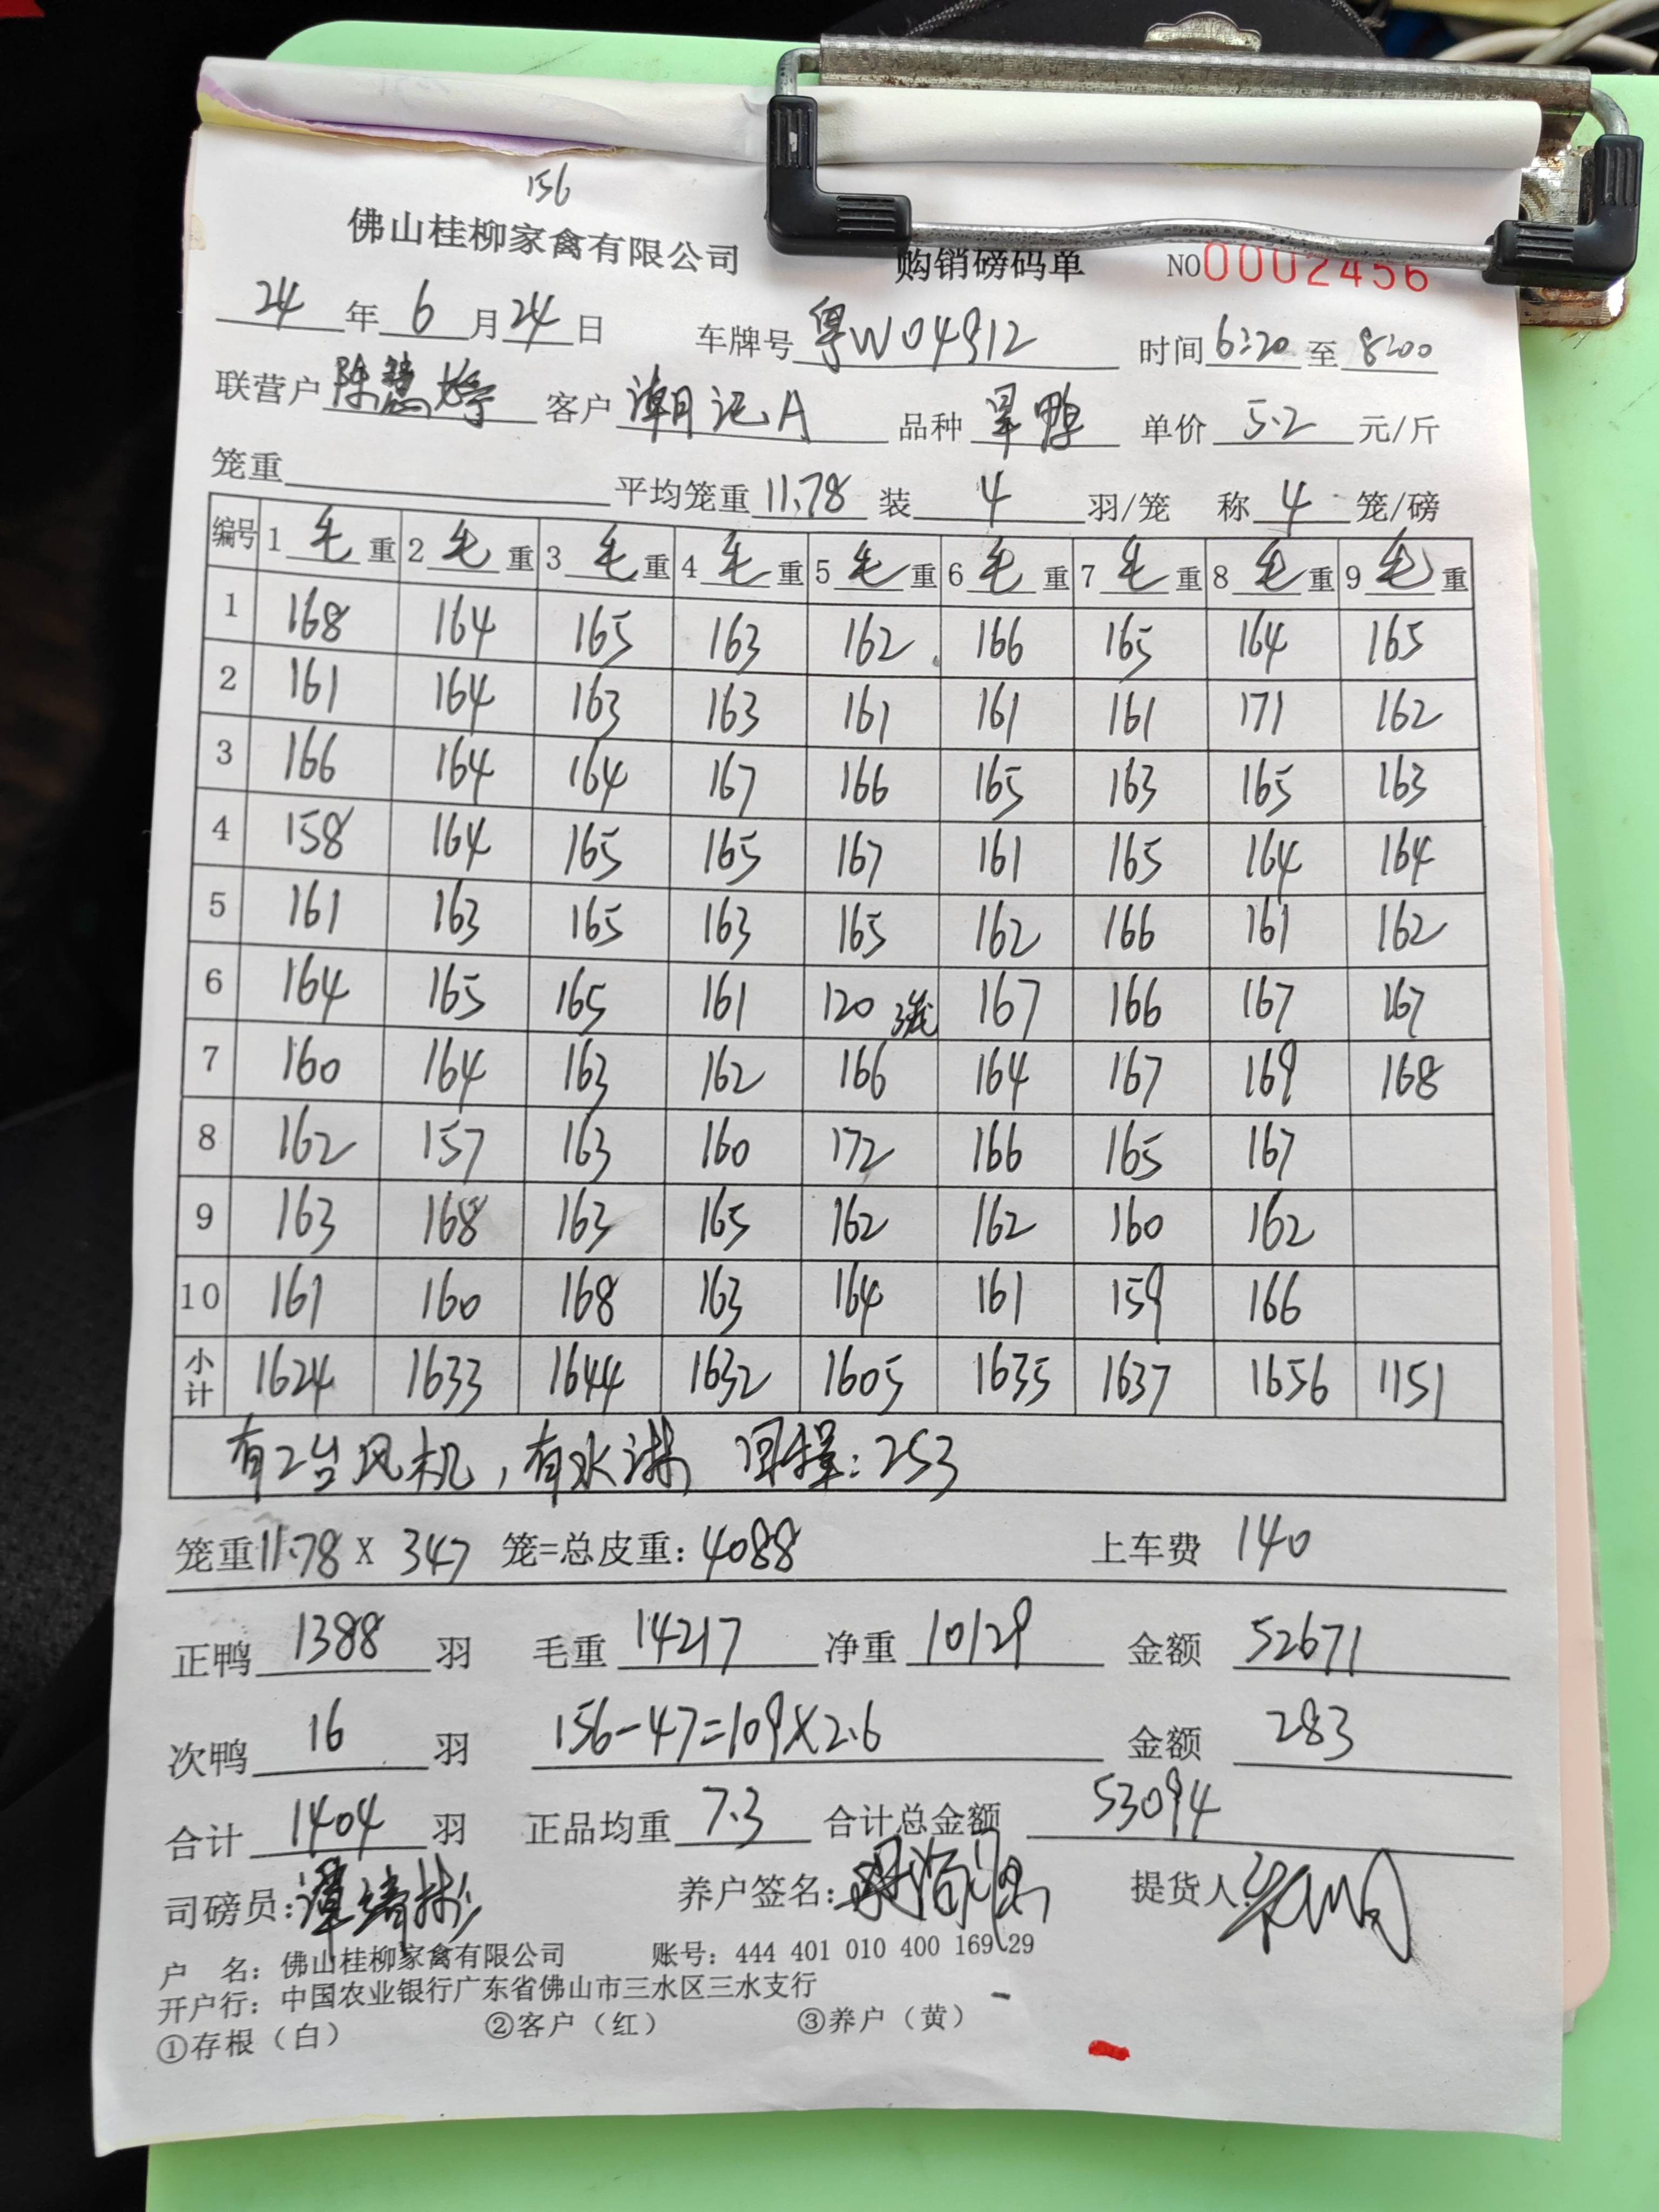 156
佛山桂柳家禽有限公司 购销磅码单 NO0002456
24年6月24日 车牌号 粤W04912 时间6:20至8:00
联营户 陈慧婷 客户 潮记A 品种 旱鸭 单价 5.2 元/斤
笼重 平均笼重 11.78 装 4 羽/笼 称 4 笼/磅
编号 1毛重 2毛重 3毛重 4毛重 5毛重 6毛重 7毛重 8毛重 9毛重
1 168 164 165 163 162 166 165 164 165
2 161 164 163 163 161 161 161 171 162
3 166 164 164 167 166 165 163 165 163
4 158 164 165 165 167 161 165 164 164
5 161 163 165 163 165 162 166 161 162
6 164 165 165 161 120 3笼 167 166 167 167
7 160 164 163 162 166 164 167 169 168
8 162 157 163 160 172 166 165 167
9 163 168 163 165 162 162 160 162
10 161 160 168 163 164 161 159 166
小计 1624 1633 1644 1632 1605 1635 1637 1656 1151
有2台风机,有水淋 回程:253
笼重11.78X 347 笼=总皮重:4088 上车费 140
正鸭 1388 羽 毛重 14217 净重 10129 金额 52671
次鸭 16 羽 156-47=109X2.6 金额 283
合计 1404 羽 正品均重 7.3 合计总金额 53094
司磅员: 养户签名: 提货人:
户 名:佛山桂柳家禽有限公司 账号:444 401 010 400 169 29
开户行:中国农业银行广东省佛山市三水区三水支行
①存根(白) ②客户(红) ③养户(黄)